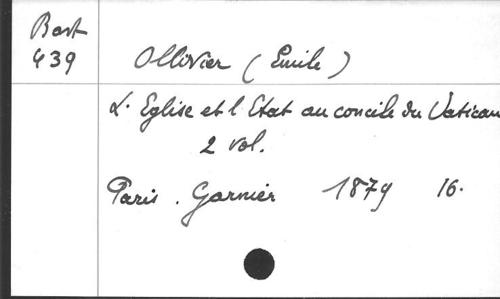 Bast
439
Ollivier (Emile)
L'Eglise et l'Etat au concile du Vatican
2 vol.
Paris. Garnier 1879 16.